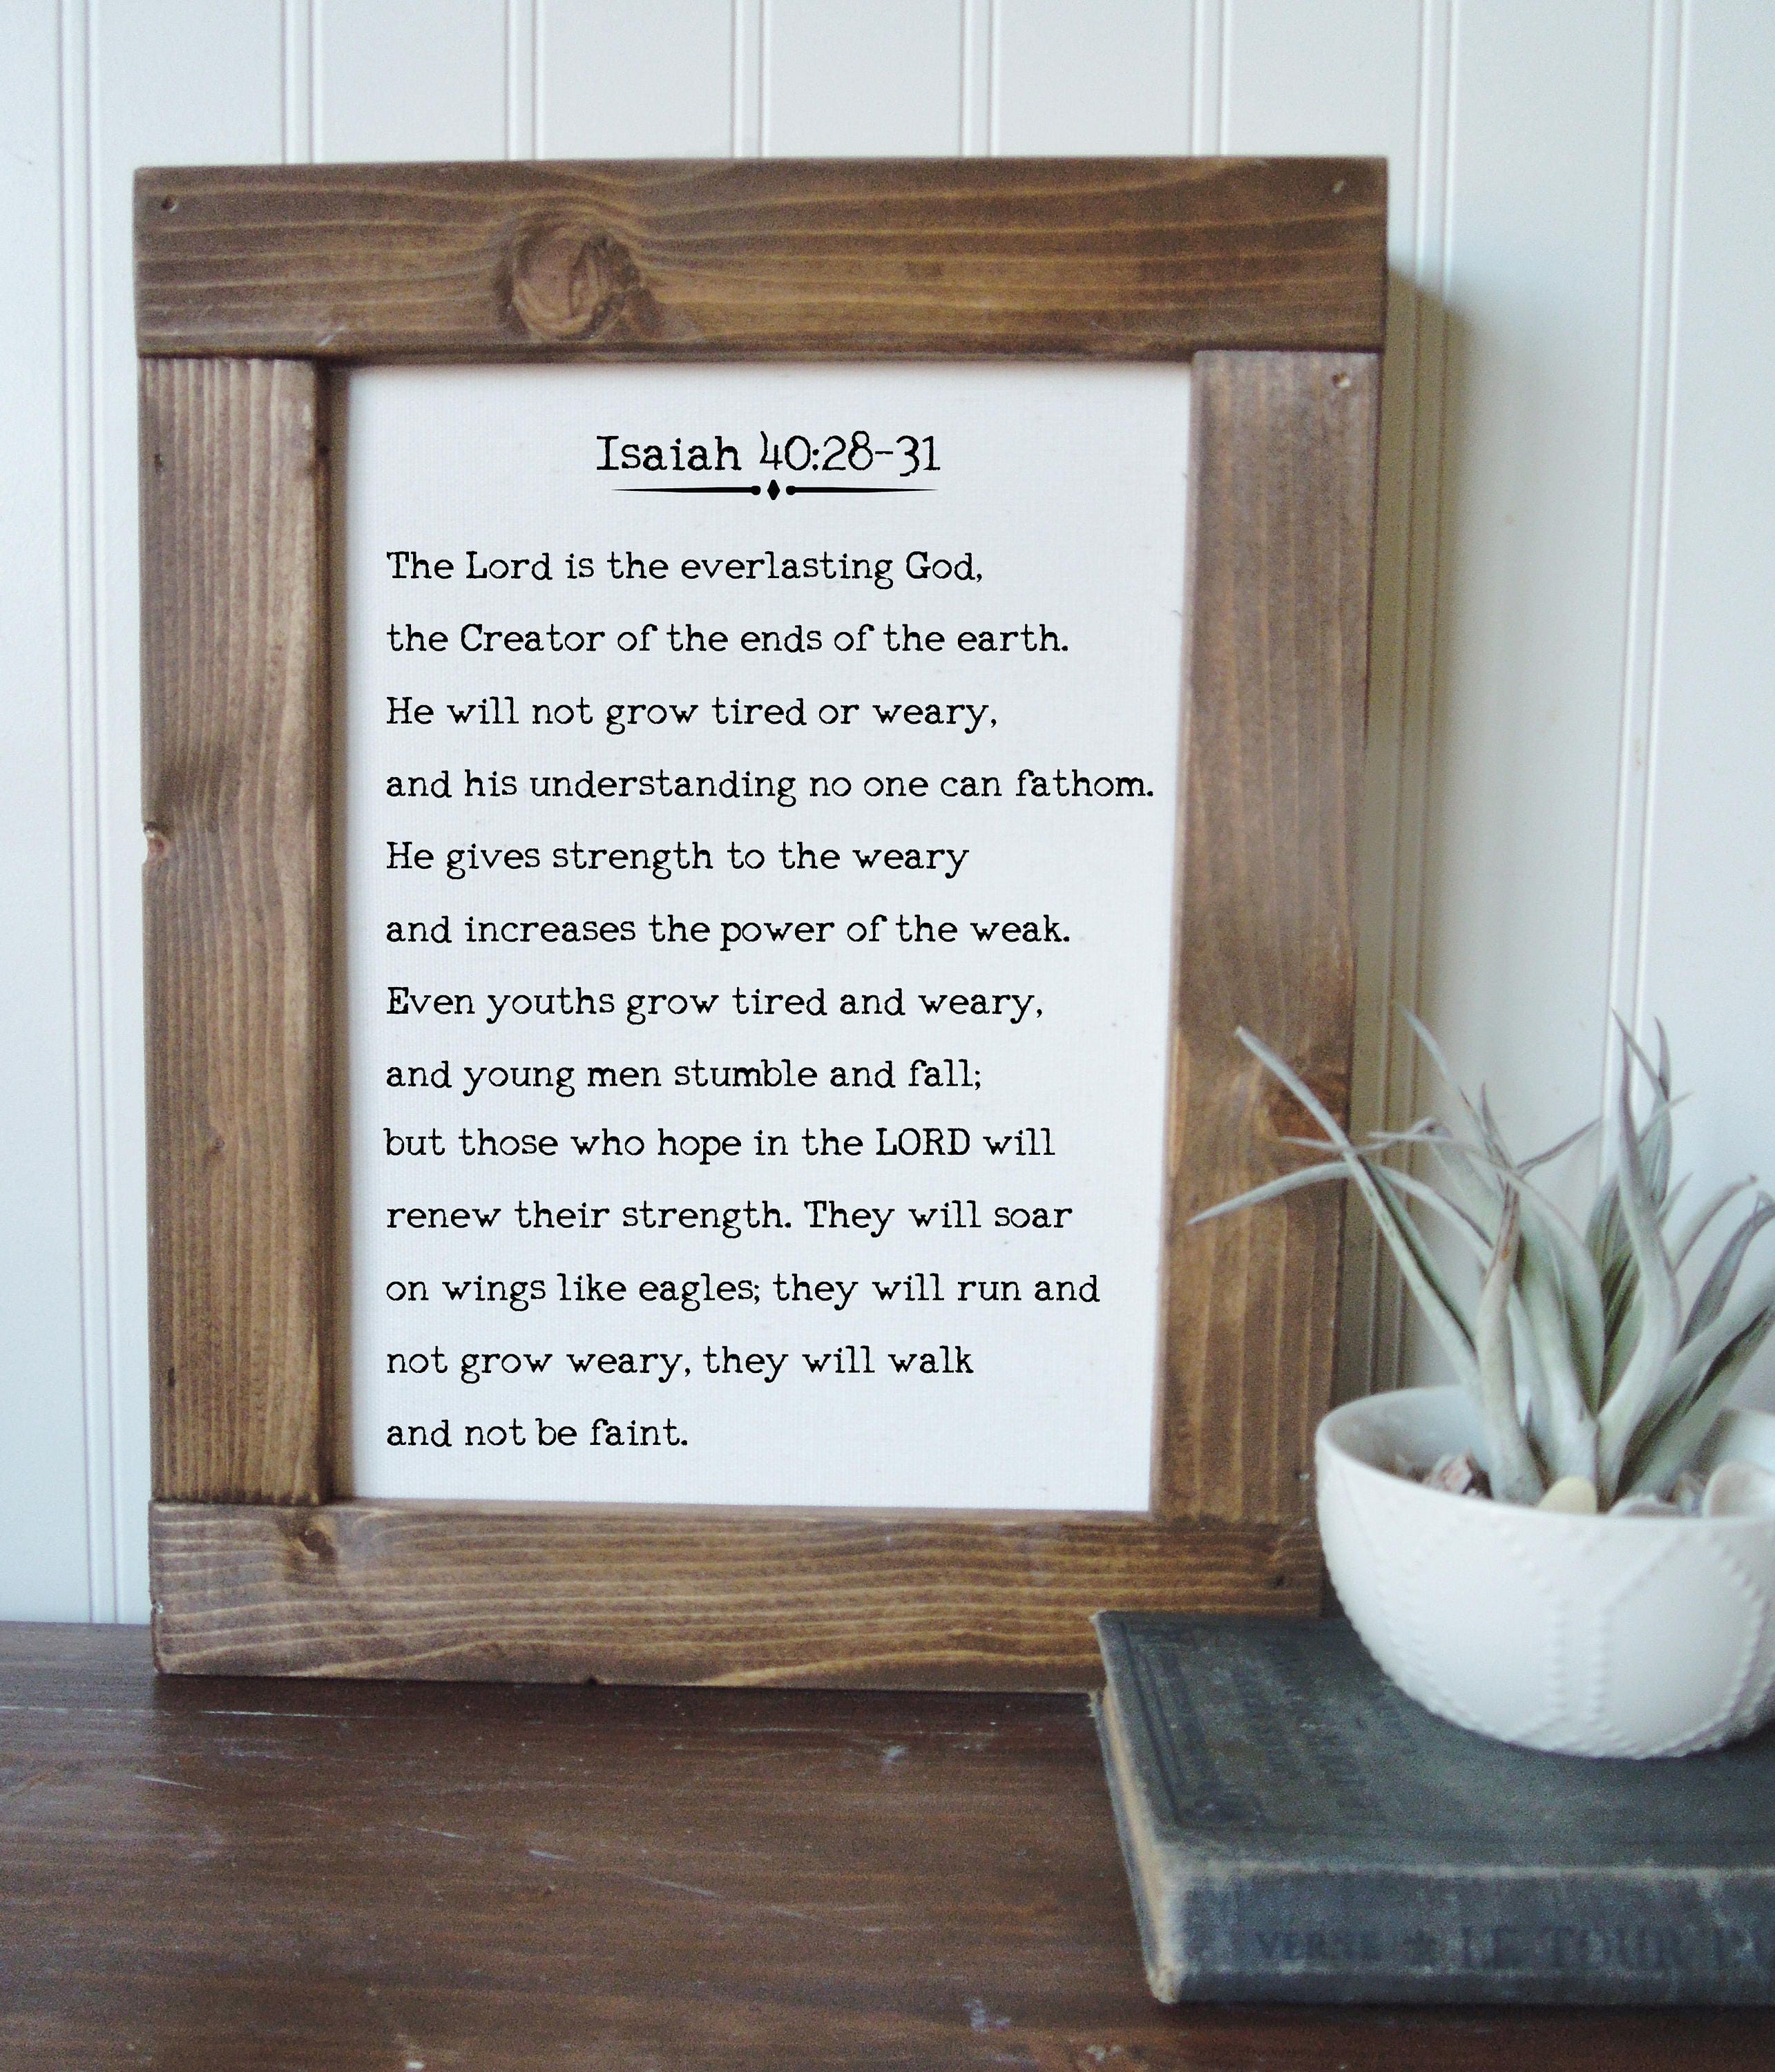 Isaiah 40:28-31
The Lord is the everlasting God,
the Creator of the ends of the earth.
He will not grow tired or weary,
and his understanding no one can fathom.
He gives strength to the weary
and increases the power of the weak.
Even youths grow tired and weary,
and young men stumble and fall;
but those who hope in the LORD will
renew their strength. They will soar
on wings like eagles; they will run and
not grow weary, they will walk
and not be faint.
VERNE ★ LE TOUR